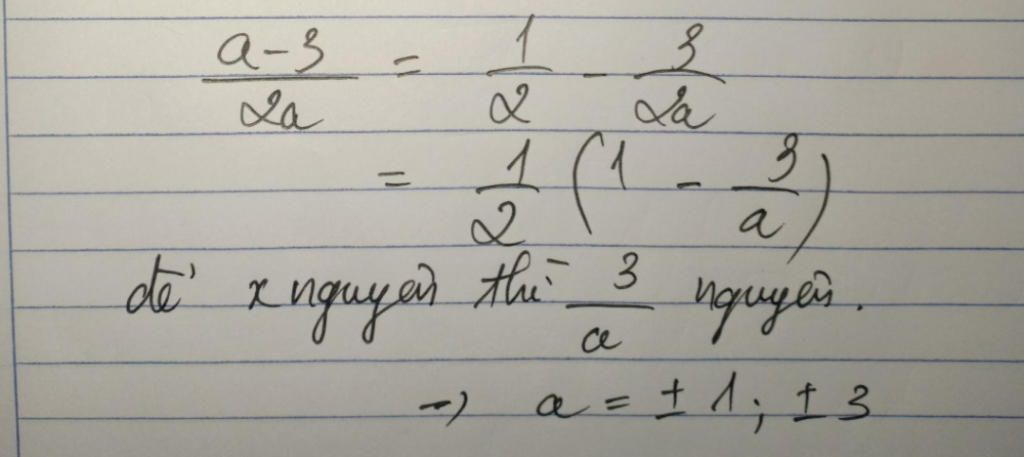 a-3/2a = 1/2 - 3/2a
= 1/2 (1 - 3/a)
để x nguyên thì 3/a nguyên.
→ a = ± 1; ± 3